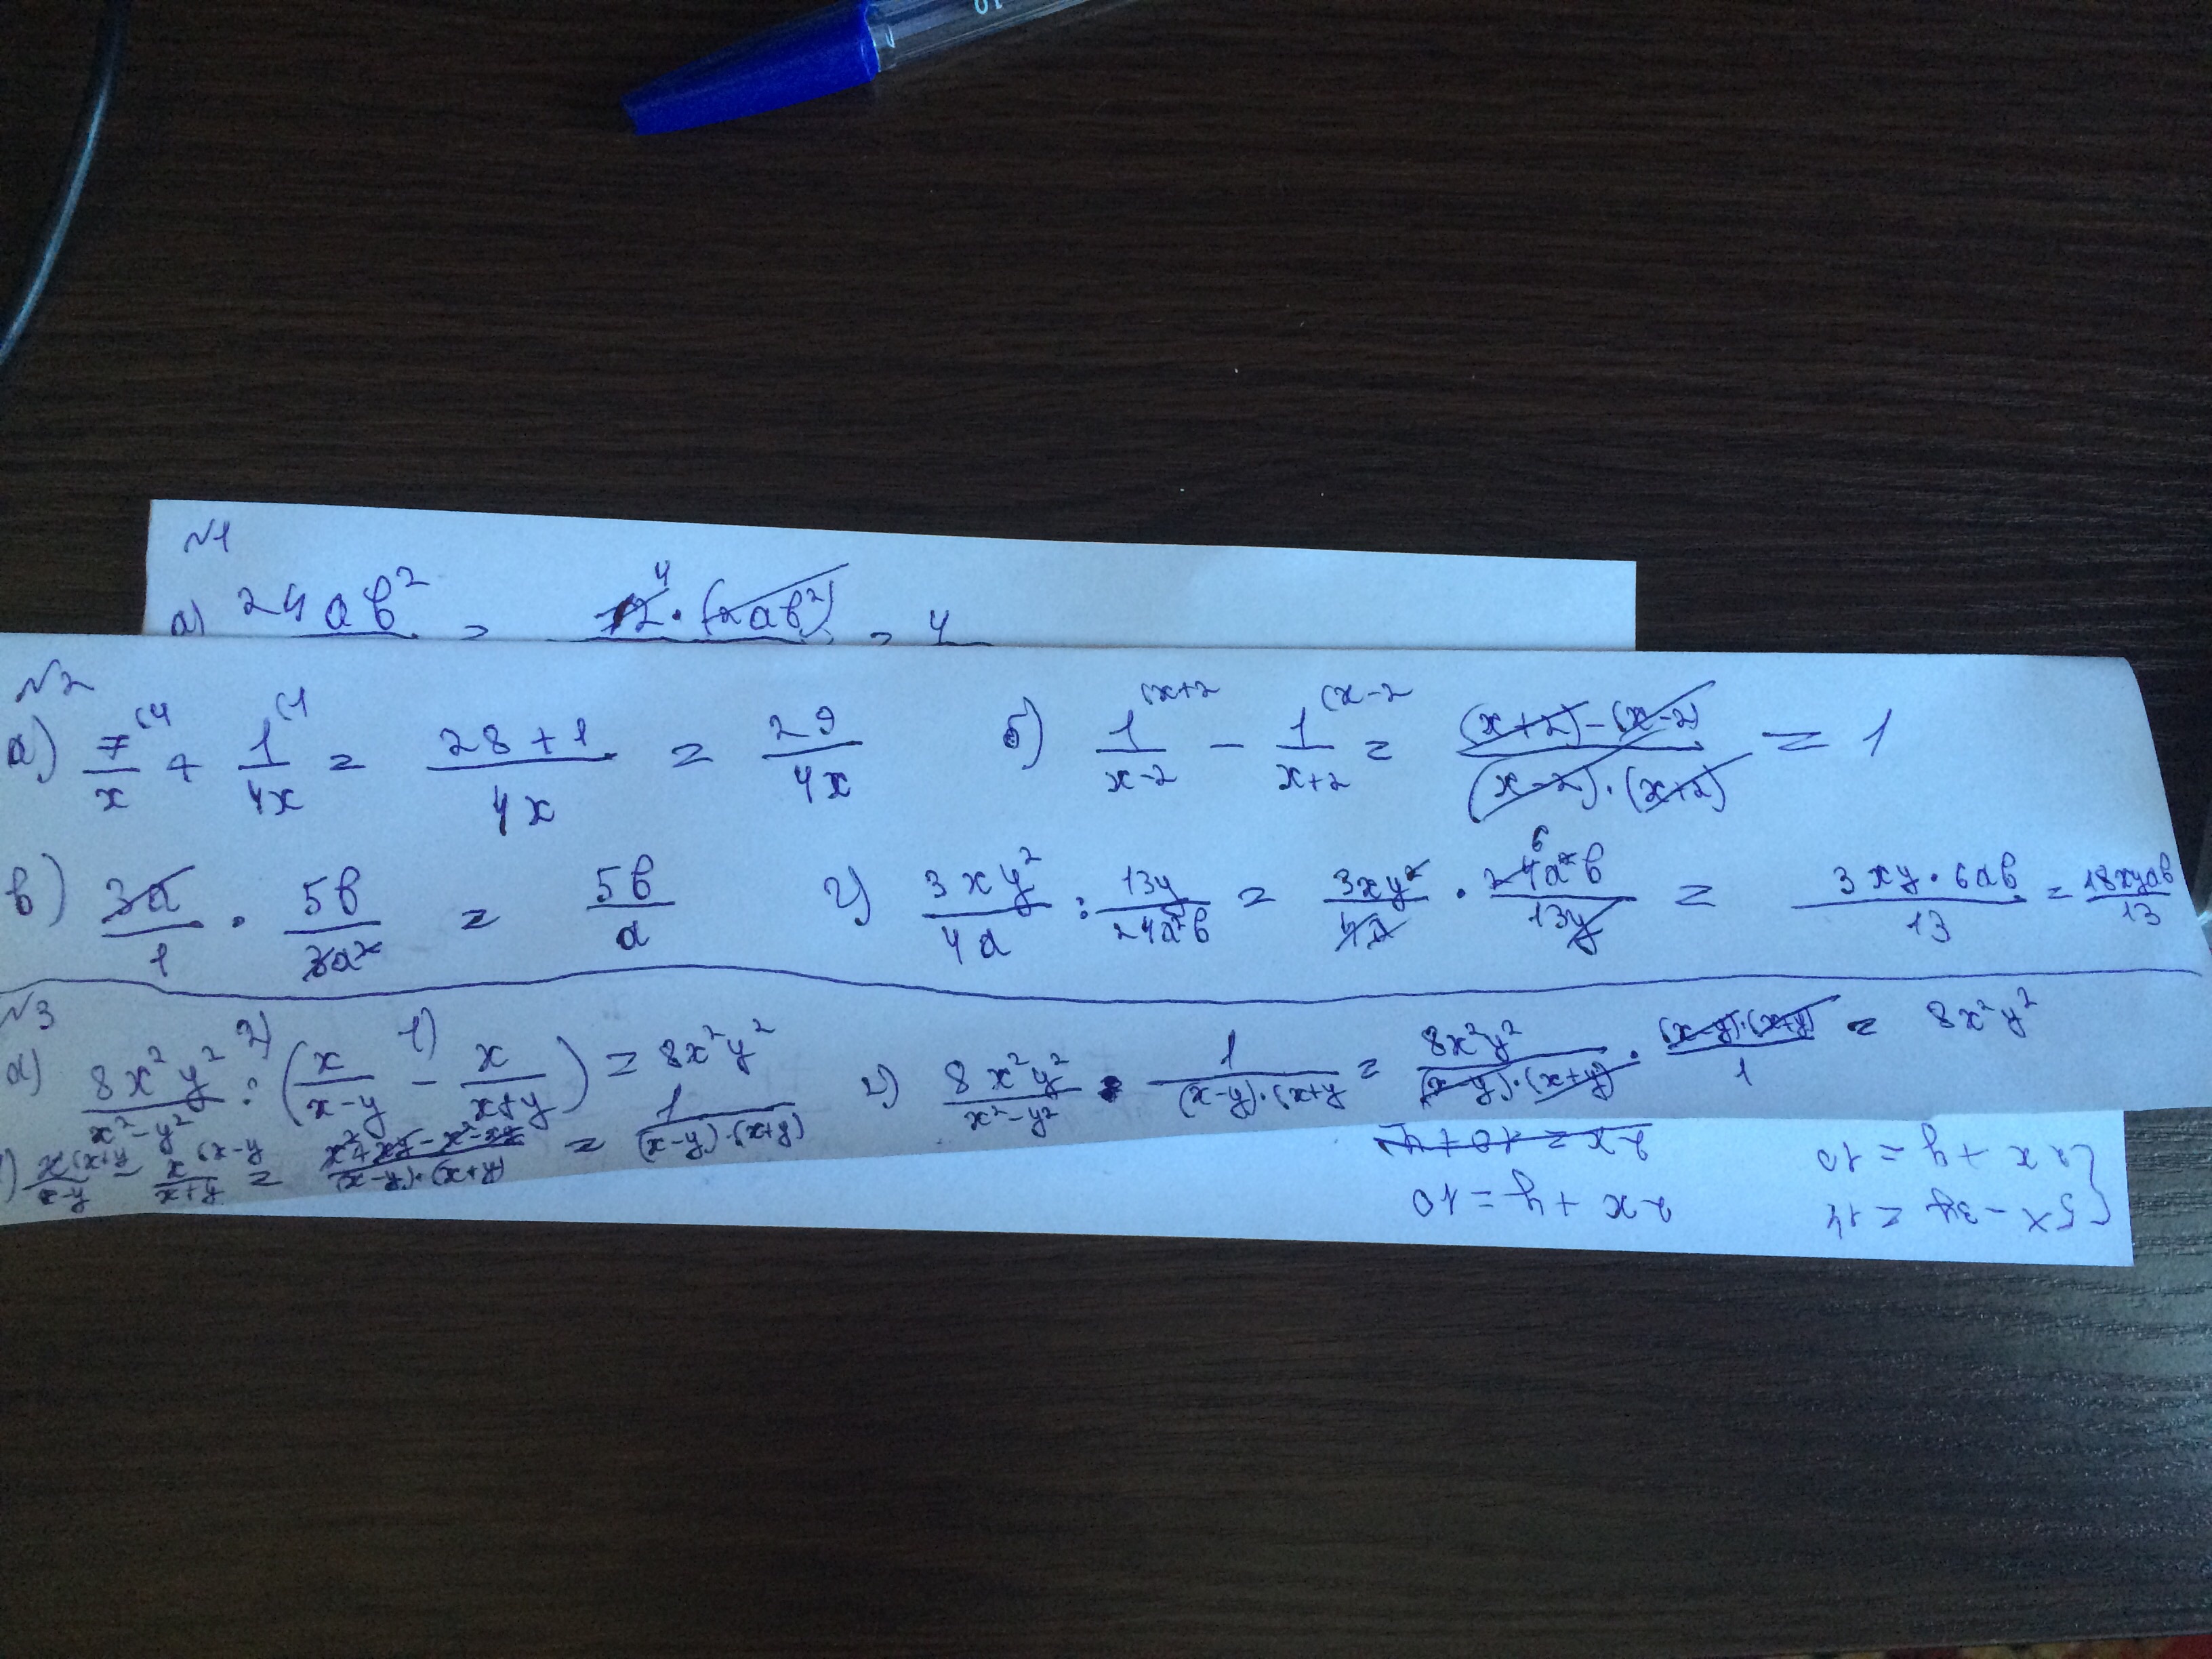 10
№1
а) 24ab² = 12⁴ · (2ab²) = 4
№2
а) 7(4/x + 1(1/4x = 28+1/4x = 29/4x б) 1(x+2/x-2 - 1(x-2/x+2 = (x+2)-(x-2)/(x-2)·(x+2) = 1
в) 3a/1 · 5b/3a² = 5b/a г) 3xy²/4a : 13y/24a²b = 3xy²/4a · 24⁶a²b/13y = 3xy·6ab/13 = 18xyab/13
№3
а) 8x²y²/x²-y² 2) : (x/x-y 1) - x/x+y) = 8x²y² 2) 8x²y²/x²-y² : 1/(x-y)·(x+y = 8x²y²/(x-y)·(x+y) · (x-y)·(x+y)/1 = 8x²y²
1) x(x+y/x-y - x(x-y/x+y = x²+xy-x²-xy/(x-y)·(x+y) = 1/(x-y)·(x+y)
{5x - 3y = 14
2x + y = 10
2x + y = 10
2x = 10 + y